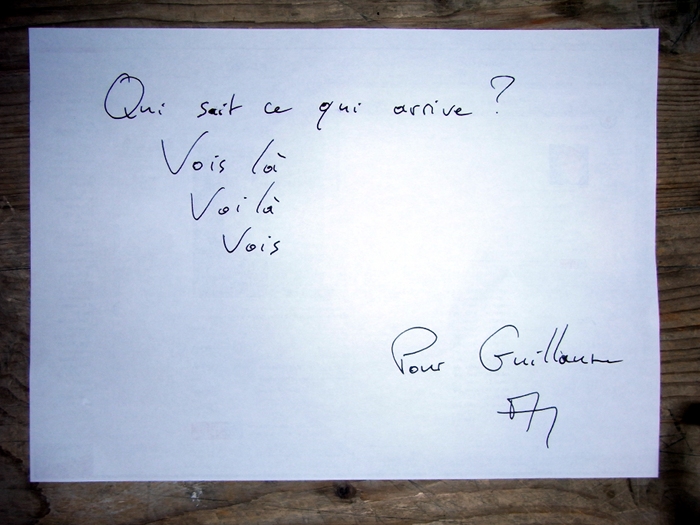 Qui sait ce qui arrive ?
Vois là
Voilà
Vois
Pour Guillaume